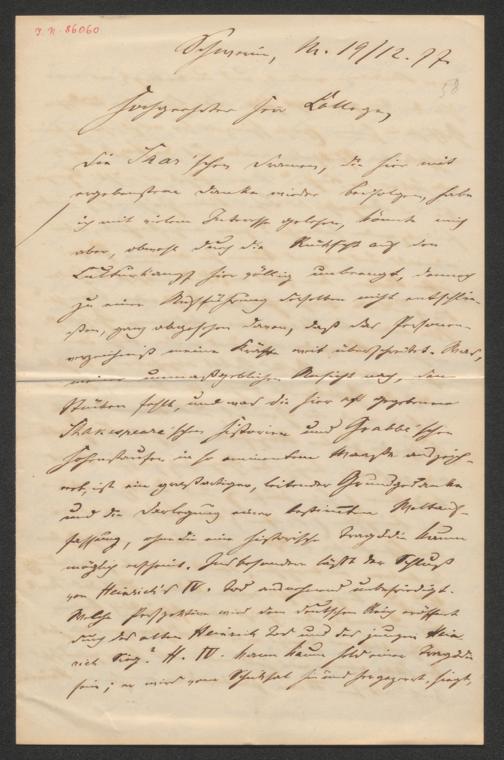 J. N. 86060
Schwerin, M. 19/12. 77
58
Hochgeehrter Herr College,
Die Saar'schen Dramen, die hier mit
ergebenstem Danke wieder beifolgen, habe
ich mit vielem Interesse gelesen, könnte mich
aber, obwohl durch die Rücksicht auf den
Culturkampf hier völlig unbeengt, dennoch
zu einer Aufführung derselben nicht entschlie-
ßen, ganz abgesehen davon, daß das Personen-
verzeichniß meine Kräfte weit überschreitet. Was,
meiner unmaßgeblichen Ansicht nach, den
Stücken fehlt, und was die hier oft gegebenen
Shakespeare'schen Historien und Grabbe'schen
Hohenstaufen in so eminentem Maaße auszeich-
net, ist ein großartiger, leitender Grundgedanke
und die Darlegung einer bestimmten Weltauf-
fassung, ohne die eine historische Tragödie kaum
möglich erscheint. Insbesondere läßt der Schluß
von Heinrich's IV. Tod annähernd unbefriedigt.
Welche Perspektive wird dem deutschen Reich eröffnet
durch des alten Heinrich Tod und des jungen Hein
rich Sieg? H. IV. kann kaum Held einer Tragödie
sein; er wird vom Schicksal hin und hergezerrt, siegt,